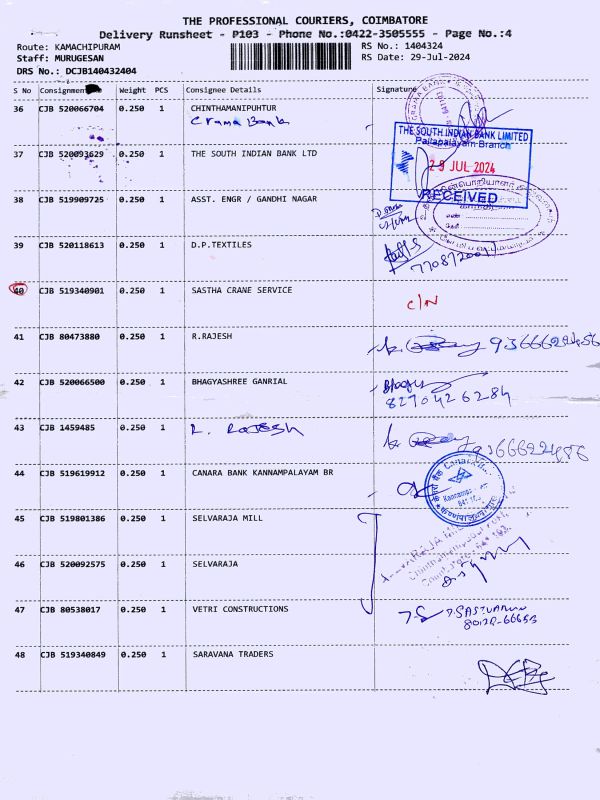 THE PROFESSIONAL COURIERS, COIMBATORE
Delivery Runsheet - P103 - Phone No.:0422-3505555 - Page No.:4
Route: KAMACHIPURAM RS No.: 1404324
Staff: MURUGESAN RS Date: 29-Jul-2024
DRS No.: DCJB140432404
S No Consignment Weight PCS Consignee Details Signature
36 CJB 520066704 0.250 1 CHINTHAMANIPUHTUR
Grama Bank
THE SOUTH INDIAN BANK LIMITED
Pallapalayam Branch
37 CJB 520093629 0.250 1 THE SOUTH INDIAN BANK LTD
29 JUL 2024
RECEIVED
38 CJB 519909725 0.250 1 ASST. ENGR / GANDHI NAGAR
39 CJB 520118613 0.250 1 D.P.TEXTILES
40 CJB 519340901 0.250 1 SASTHA CRANE SERVICE
C/N
41 CJB 80473880 0.250 1 R.RAJESH
42 CJB 520066500 0.250 1 BHAGYASHREE GANRIAL
8270426284
43 CJB 1459485 0.250 1 R. Rajesh
44 CJB 519619912 0.250 1 CANARA BANK KANNAMPALAYAM BR
45 CJB 519801386 0.250 1 SELVARAJA MILL
46 CJB 520092575 0.250 1 SELVARAJA
47 CJB 80538017 0.250 1 VETRI CONSTRUCTIONS
48 CJB 519340849 0.250 1 SARAVANA TRADERS